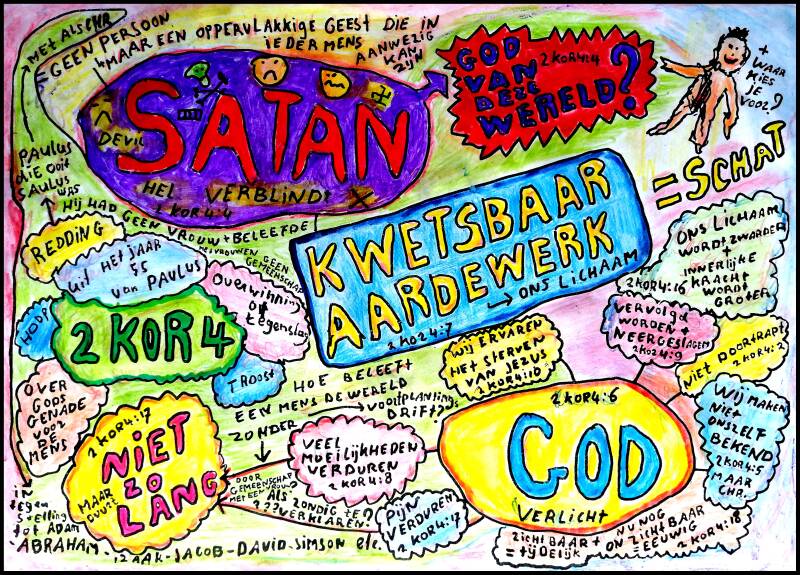 MET ALS CHR
GEEN PERSOON
MAAR EEN OPPERVLAKKIGE GEEST DIE IN
IEDER MENS
AANWEZIG
KAN
ZIJN
SATAN
DEVIL
HEL VERBLINDT
2 KOR 4:4
GOD
VAN
DEZE
WERELD?
2 KOR 4:4
+
WAAR
KIES
JE
VOOR?
= SCHAT
PAULUS
die ooit
SAULUS
WAS
HIJ HAD GEEN VROUW + BELEEFDE
MET VROUWEN GEEN
GEMEENSCHAP
REDDING
uit HET JAAR
55
van PAULUS
OVERWINNING
OF
tegenslag
HOOP
2 KOR 4
TROOST
OVER
GODS
GENADE
VOOR
DE
MENS
KWETSBAAR
AARDEWERK
ONS LICHAAM
2 KO2 4:7
ONS LICHAAM
WORDT ZWAKKER
2 KOR 4:16
INNERLIJKE
KRACHT
WORDT
GROTER
VERVOLGD
WORDEN +
NEERGESLAGEN
2 KO2 4:9
NIET DOODTRAPT
2 KOR 4:2
WIJ ERVAREN
HET STERVEN
VAN JEZUS
2 KOR 4:10
WIJ MAKEN
NIET
ONSZELF
BEKEND
2 KOR 4:5
MAAR
CHR.
HOE BELEEFT
EEN MENS DE WERELD
ZONDER
VOORTPLANTINGS
DRIFT??
2 KOR 4:17
NIET
ZO
LANG
MAAR
DUURT
VEEL
MOEILIJKHEDEN
VERDUREN
2 KOR 4:8
DOOR
GEMEENSCHAP
MET EEN VROUW
ALS
ZONDIG TE?
???VERKLAREN!
PIJN
VERDUREN
2 KOR 4:17
2 KOR 4:6
GOD
VERLICHT
ZICHTBAAR +
= TIJDELIJK
NU NOG
ONZICHTBAAR
= EEUWIG
2 KOR 4:18
IN
tegen
stelling
tot ADAM
-ABRAHAM - IZAAK - JACOB - DAVID - SIMSON etc.